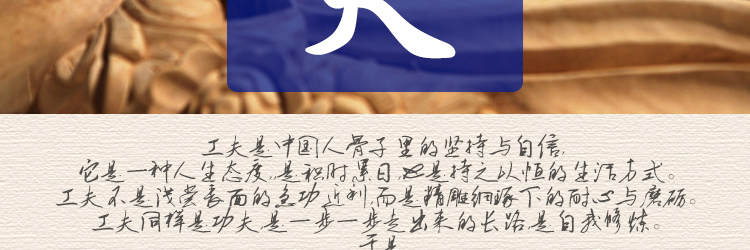 工夫是中国人骨子里的坚持与自信,
它是一种人生态度,是积时累日,也是持之以恒的生活方式。
工夫不是浅尝表面的急功近利,而是精雕细琢下的耐心与磨砺。
工夫同样是功夫,是一步一步走出来的长路,是自我修炼。
于是